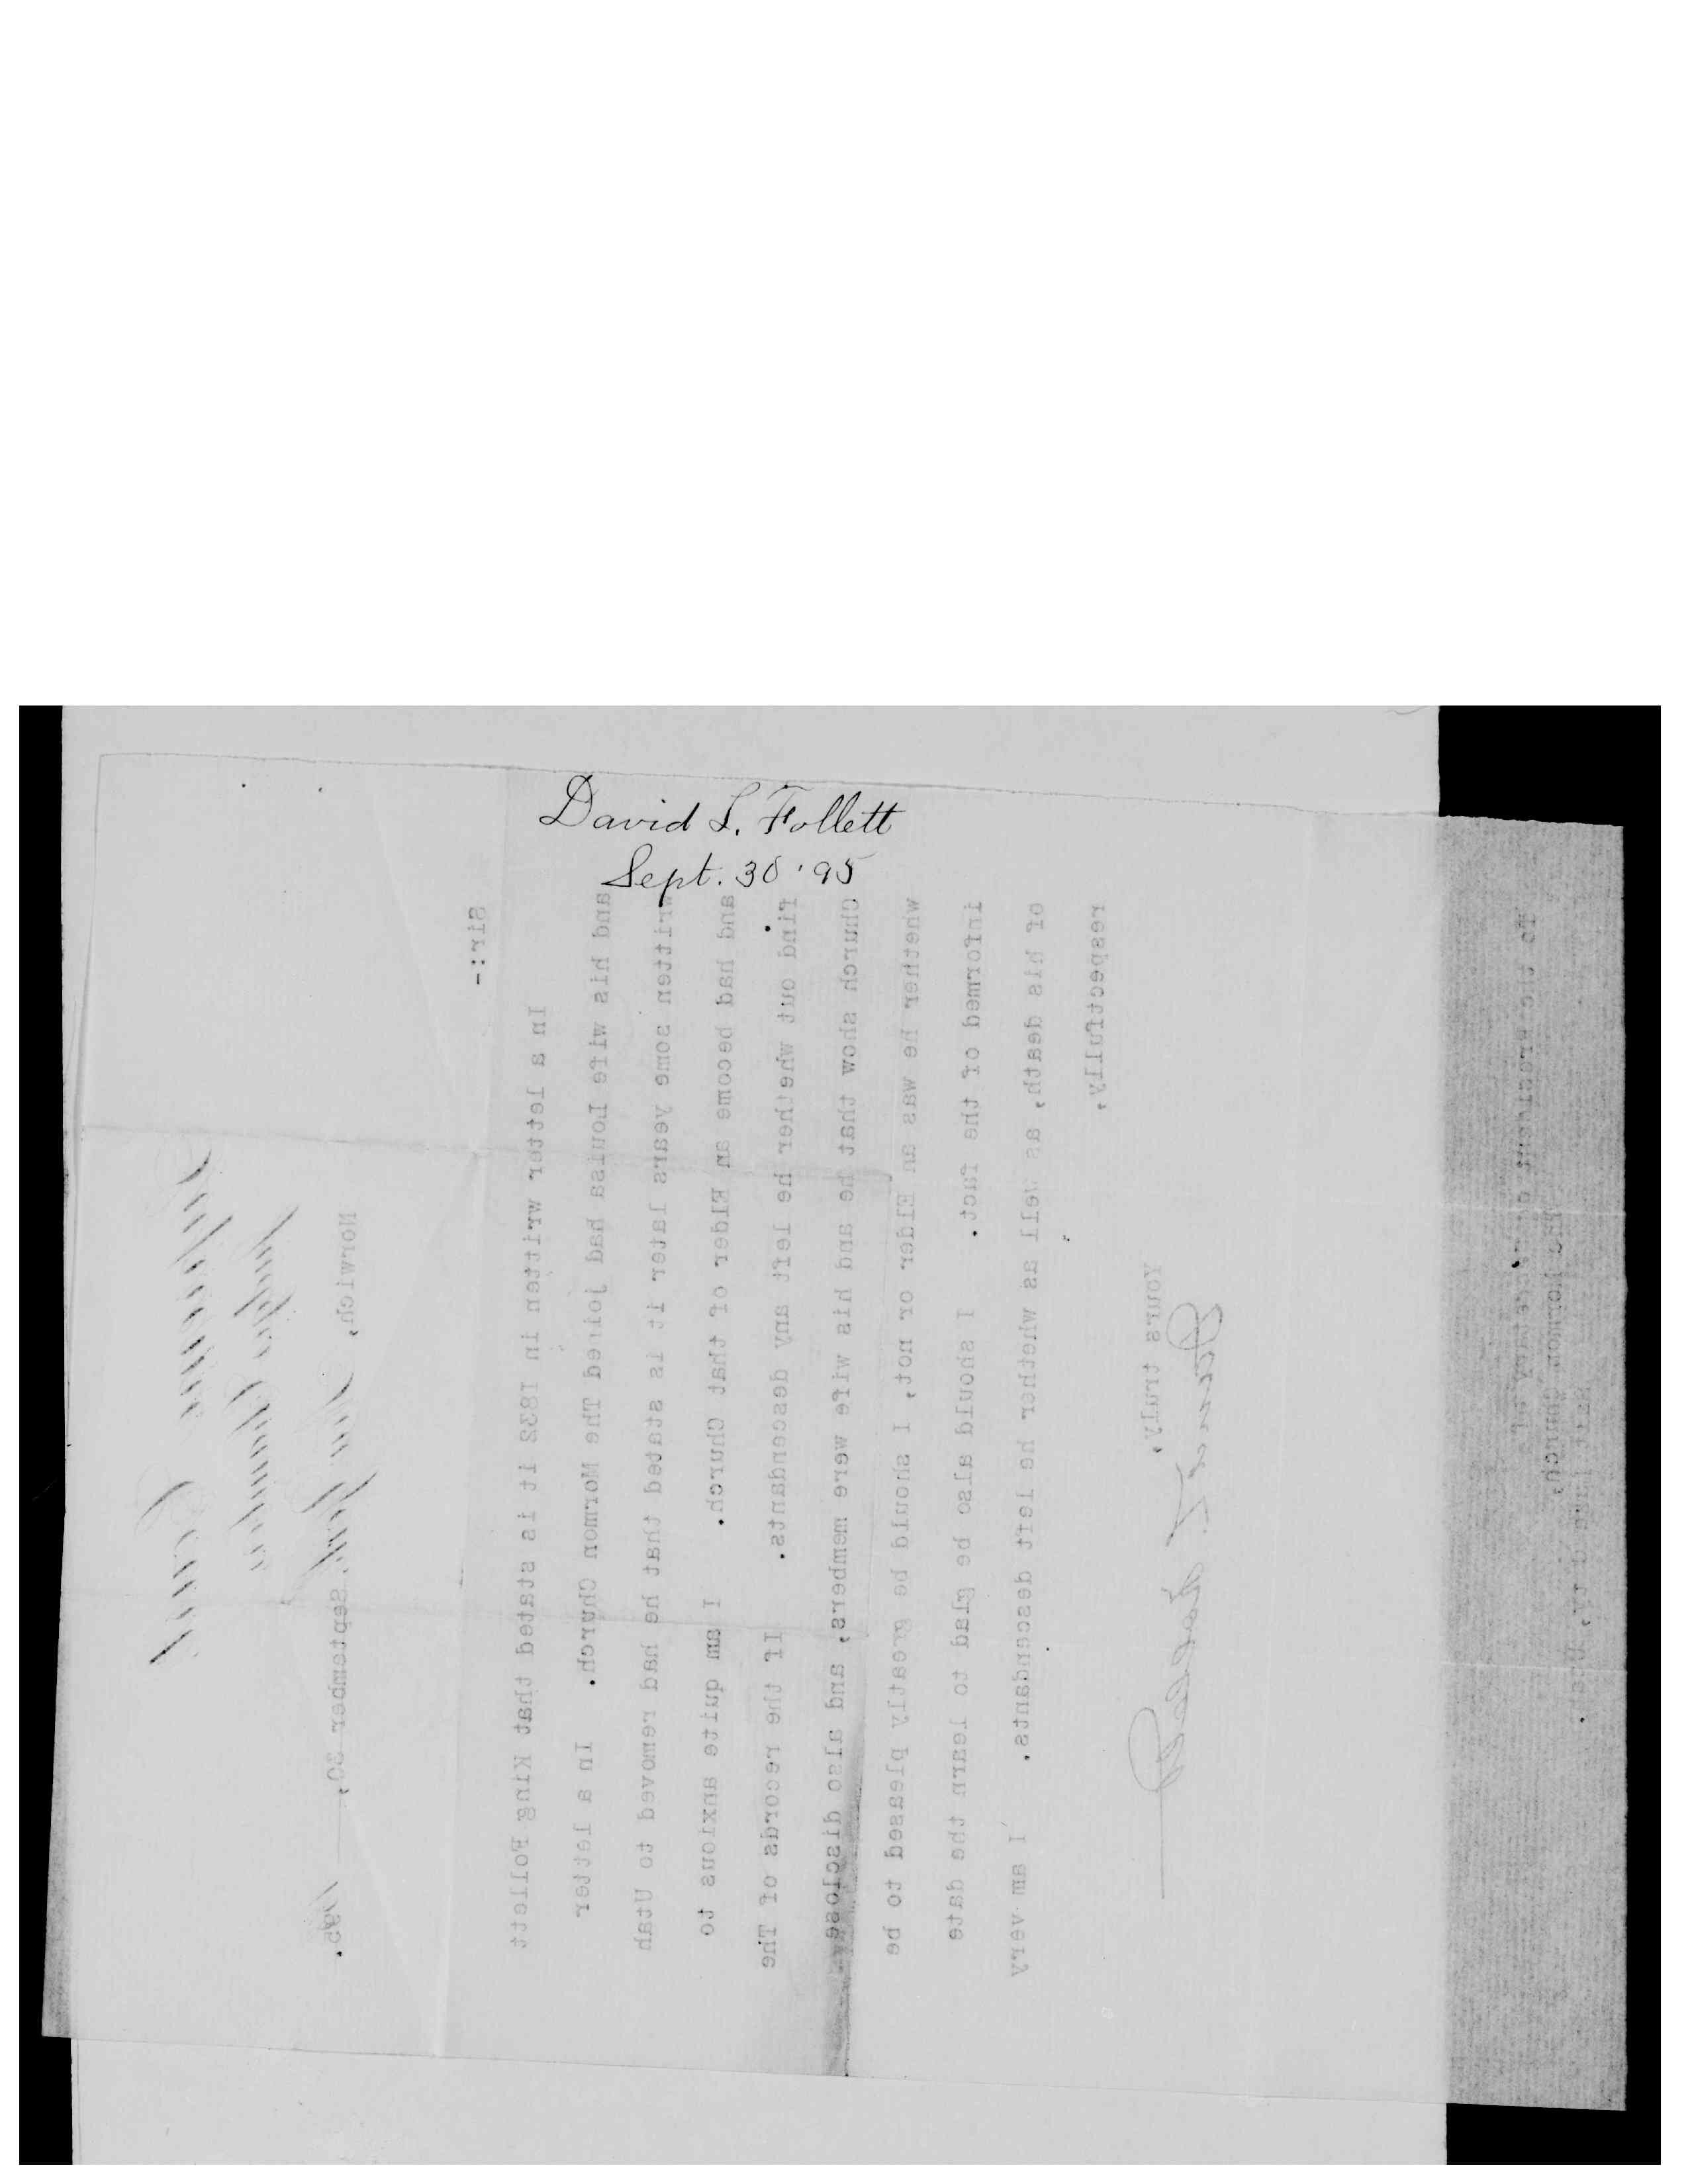 David L. Follett
Sept. 30 '95
Norwich, New York, September 30, 1895.
Sir:-
In a letter written in 1832 it is stated that King Follett
and his wife Louisa had joined The Mormon Church. In a letter
written some years later it is stated that he had removed to Utah
and had become an Elder of that Church. I am quite anxious to
find out whether he left any descendants. If the records of The
Church show that he and his wife were members, and also disclose
whether he was an Elder or not, I should be greatly pleased to be
informed of the fact. I should also be glad to learn the date
of his death, as well as whether he left descendants. I am very
respectfully,
Yours truly,
David L. Follett
To the President or Secretary of
The Mormon Church,
Salt Lake City, Utah.